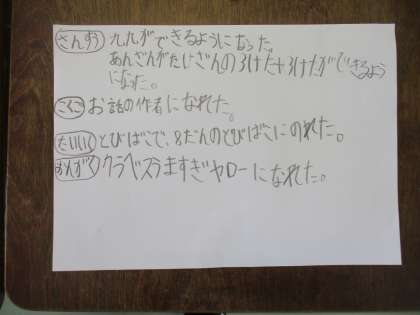 さんすう 九九ができるようになった。
あんざんがたしざんの3けた+3けたができるよう
になった。
こくご お話の作者になれた。
たいいく とびばこで、8だんのとびばこにのれた。
おんがく クラベスうますぎヤローになれた。